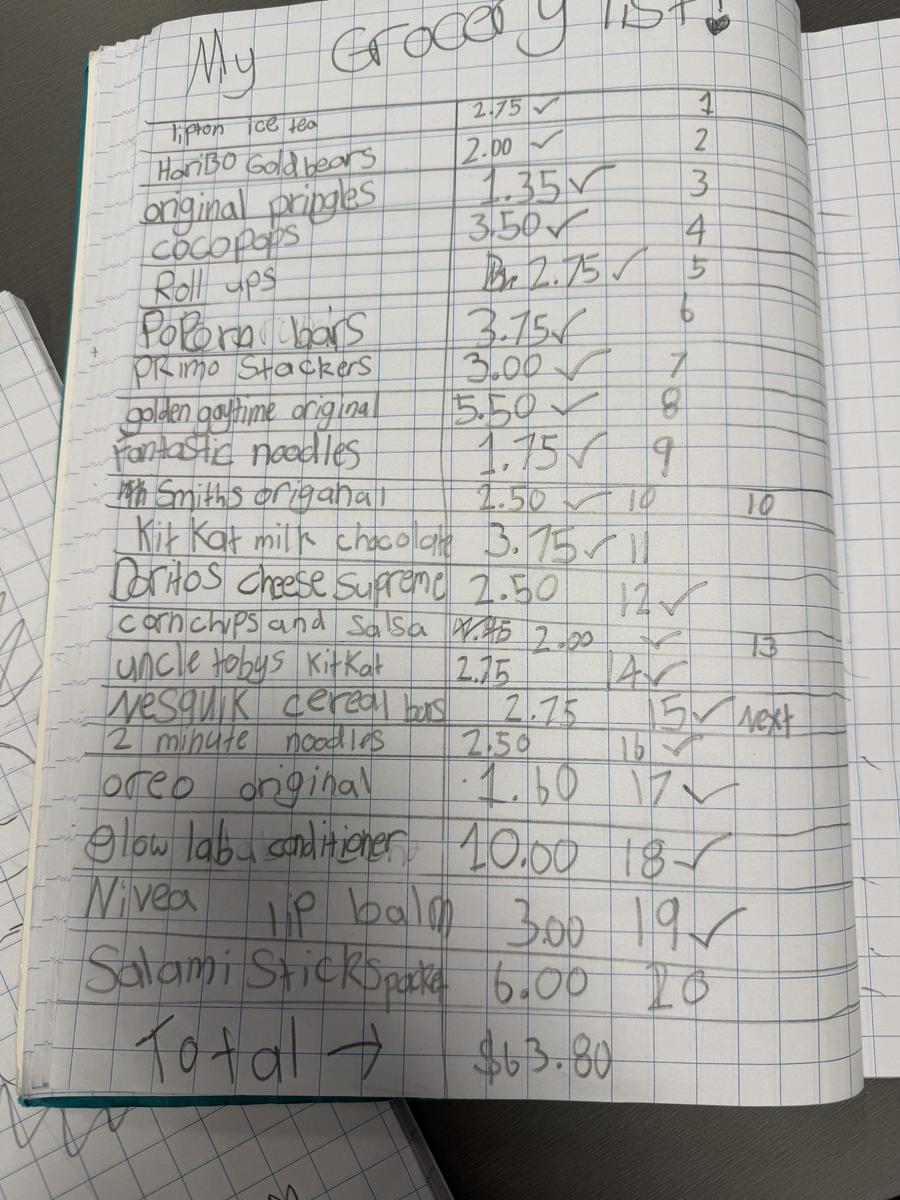 My Grocery list!
lipton ice tea 2.75 ✓ 1
HariBO Goldbears 2.00 ✓ 2
original pringles 1.35 ✓ 3
cocopops 3.50 ✓ 4
Roll ups 2.75 ✓ 5
PoPcorn bars 3.75 ✓ 6
PRimo Stackers 3.00 ✓ 7
golden gaytime original 5.50 ✓ 8
Fantastic noodles 1.75 ✓ 9
Smiths origanal 2.50 ✓ 10 10
Kit Kat milk chocolate 3.75 ✓ 11
Doritos cheese Supreme 2.50 12 ✓
cornchips and Salsa 2.00 ✓ 13
uncle tobys KitKat 2.75 14 ✓
Nesquik cereal bars 2.75 15 ✓ Next
2 minute noodles 2.50 16 ✓
oreo original 1.60 17 ✓
Glow lab conditioner 10.00 18 ✓
Nivea lip balm 3.00 19 ✓
Salami Sticks packet 6.00 20
Total → $63.80